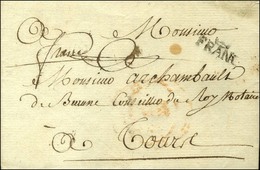 Monsieur
franc
FRANC
Monsieur archambault
de Beaune Conseiller du Roy Notaire
A Tours